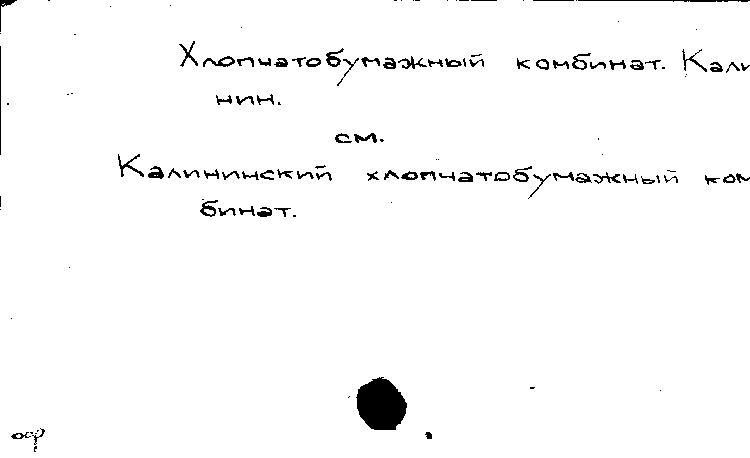 Хлопчатобумажный комбинат. Кали
нин.
см.
Калининский хлопчатобумажный ком
бинат.